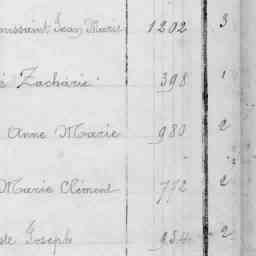 oussaint Jean Marie 1202 3
é Zacharie 398 1
Anne Marie 980 2
Marie Clément 772 2
ste Joseph 954 2